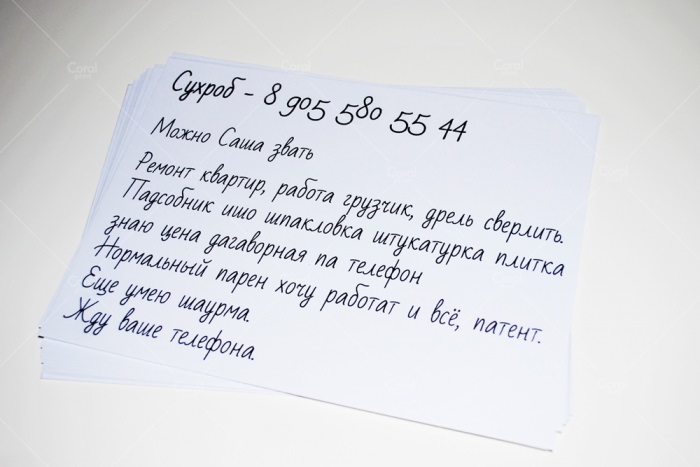 Сухроб - 8 905 580 55 44
Можно Саша звать
Ремонт квартир, работа грузчик, дрель сверлить.
Падсобник ишо шпакловка штукатурка плитка
знаю цена дагаворная па телефон
Нормальный парен хочу работат и всё, патент.
Еще умею шаурма.
Жду ваше телефона.